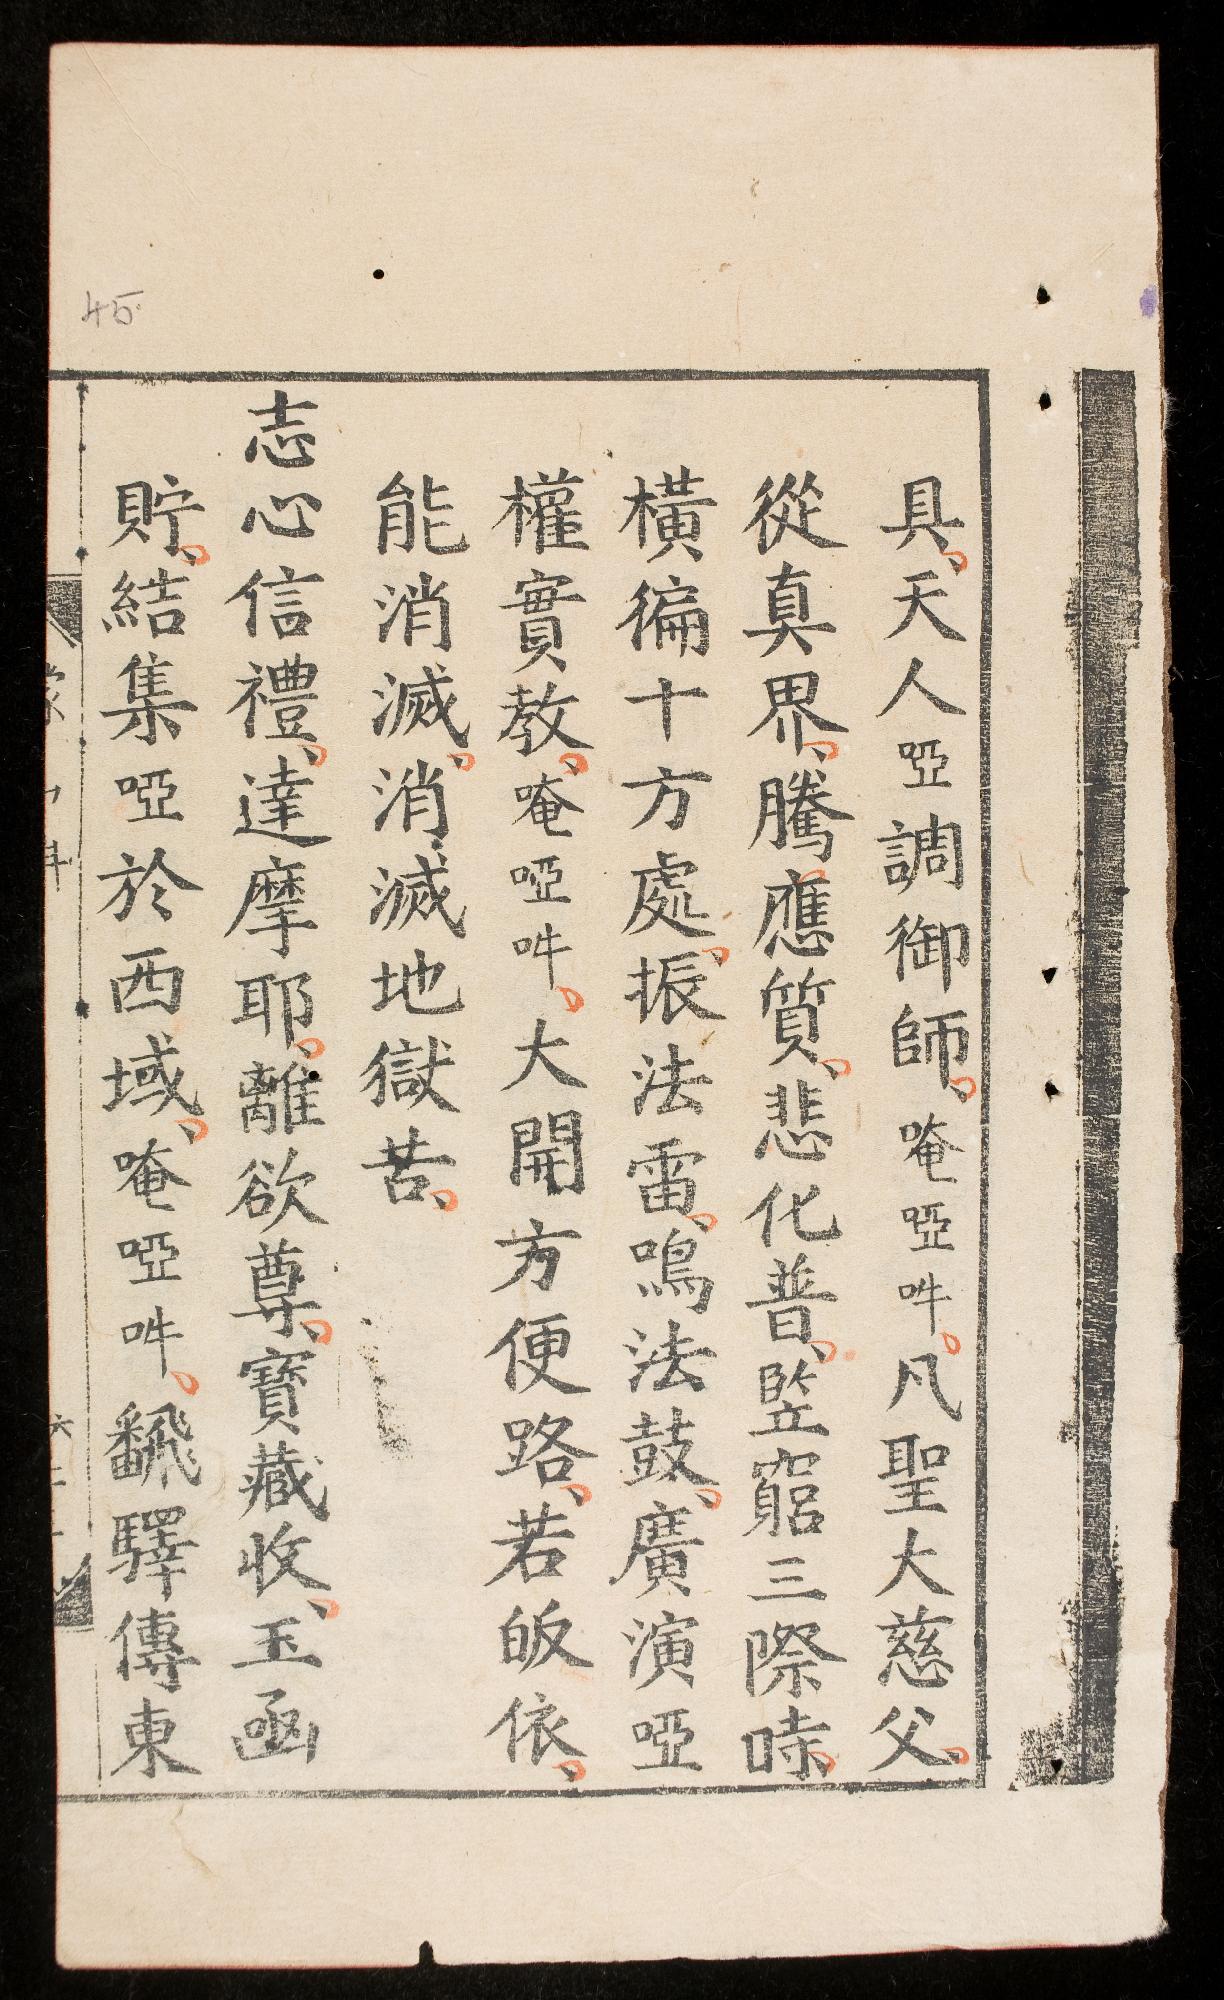 45
具、天人啞調御師、唵啞吽、凡聖大慈父、
從真界、騰應質、悲化普、竪窮三際時、
橫徧十方處、振法雷、鳴法鼓、廣演啞
權實教、唵啞吽、大開方便路、若皈依、
能消滅、消滅地獄苦、
志心信禮、達摩耶、離欲尊、寶藏收、玉函
貯、結集啞於西域、唵啞吽、飜驛傳東